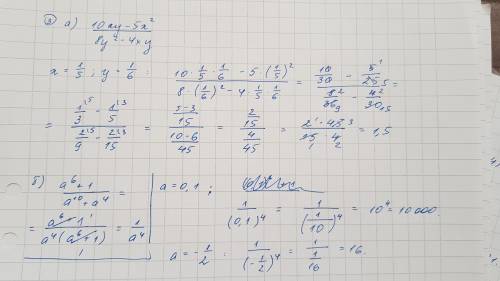 ③ а) (10xy − 5x²)/(8y² − 4xy)
x = 1/5 ; y = 1/6 : (10 · 1/5 · 1/6 − 5 · (1/5)²)/(8 · (1/6)² − 4 · 1/5 · 1/6) = (10/30 − 5¹/25₅)/(8²/36₉ − 4²/30₁₅) =
= (1^{\5}/3 − 1^{\3}/5)/(2^{\5}/9 − 2^{\3}/15) = ((5−3)/15)/((10−6)/45) = (2/15)/(4/45) = (2¹ · 45³)/(15₁ · 4₂) = 1,5
б) (a⁶ + 1)/(a¹⁰ + a⁴) =
= (a⁶ + 1)¹/(a⁴(a⁶ + 1)₁) = 1/a⁴
a = 0,1 ;
1/(0,1)⁴ = 1/(1/10)⁴ = 10⁴ = 10 000.
a = −1/2 : 1/(−1/2)⁴ = 1/(1/16) = 16.